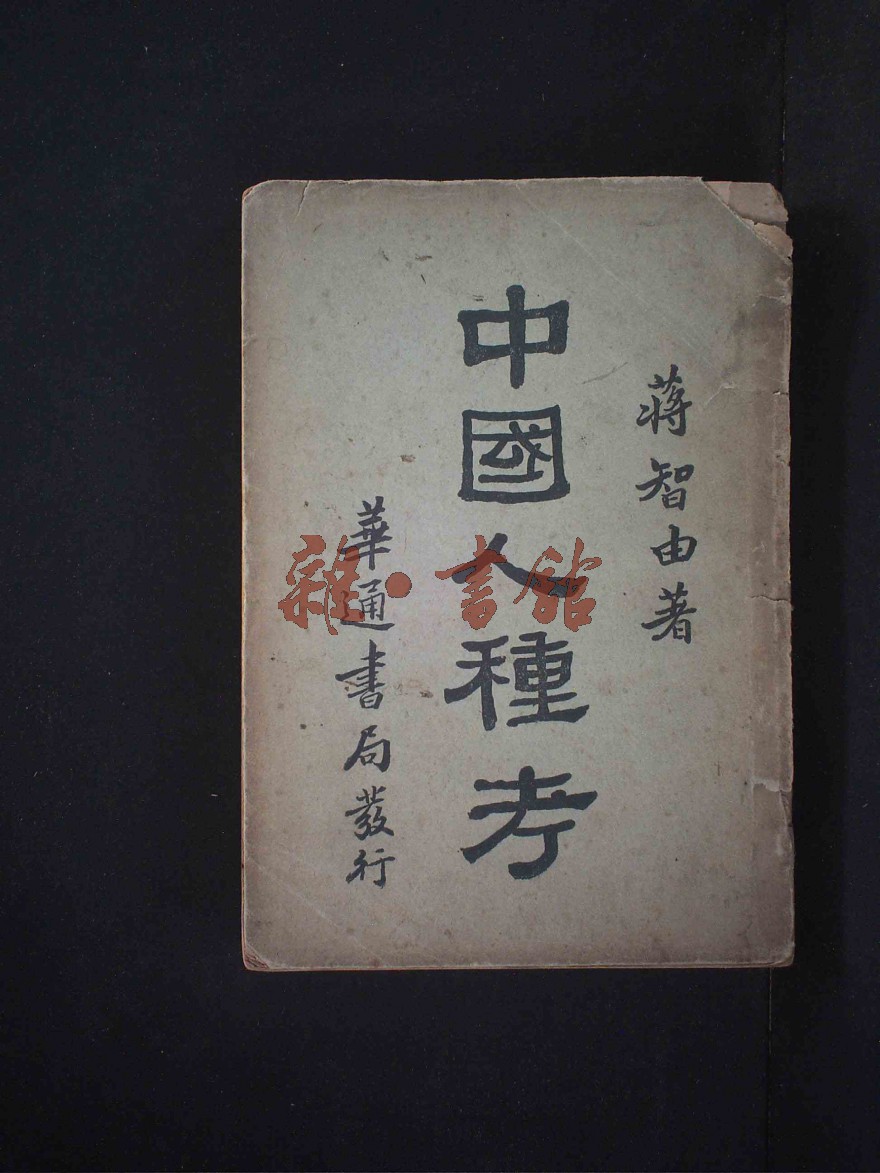 蔣智由著
中國人種考
華通書局發行
雜·書館